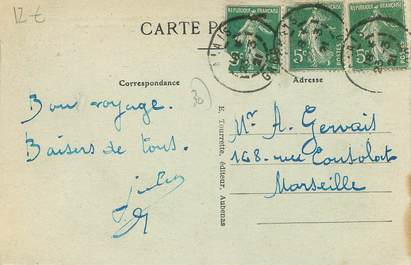 12 €
CARTE PO
REPUBLIQUE FRANÇAISE
REPUBLIQUE FRANÇAISE
REPUBLIQUE FRANÇAISE
5c POSTES
5c POSTES
5c
ALAIS
Correspondance
Adresse
Bon voyage.
Baisers de tous.
E. Tourrette, éditeur, Aubenas
Mr A. Gervais
148. rue Consolat
Marseille